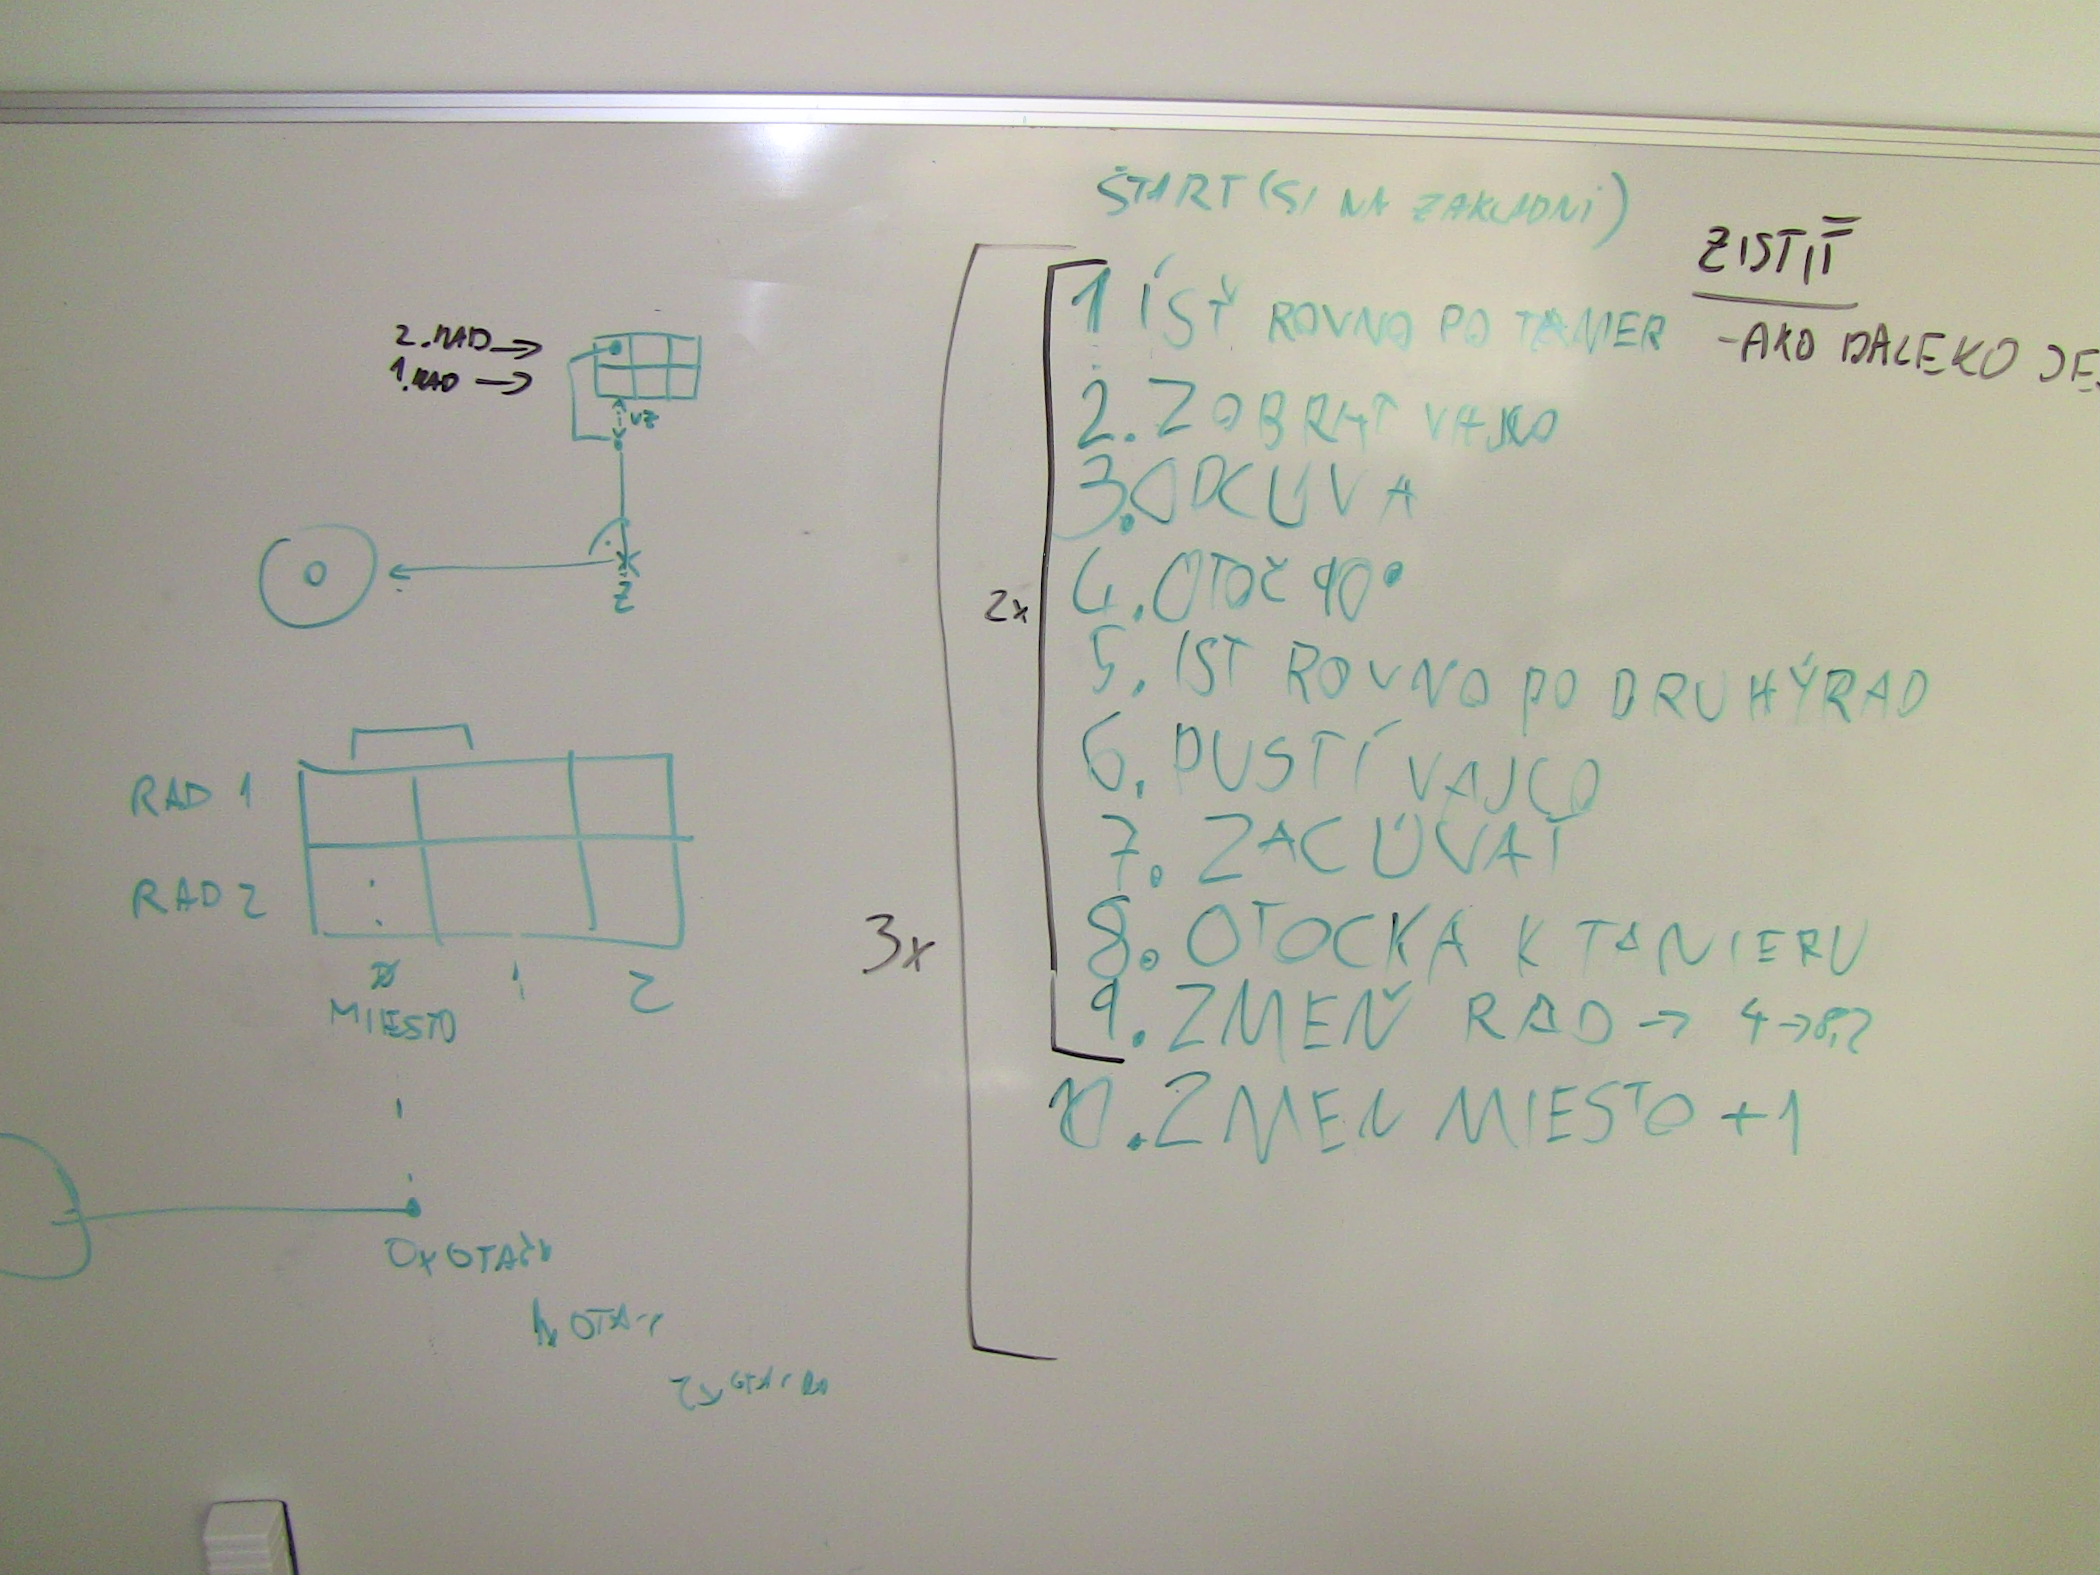 ŠTART (SI NA ZAKLADNI)
ZISTIŤ
-AKO DALEKO JE
1 ÍSŤ ROVNO PO TANIER
2. ZOBRAT VAJCO
3. ODCÚVA
4. OTOČ 90°
5. IST ROVNO PO DRUHÝ RAD
6. PUSTÍ VAJCO
7. ZACÚVAŤ
8. OTOCKA K TANIERU
9. ZMEŇ RAD → 4→8,2
10. ZMEN MIESTO +1
2x
3x
2. RAD →
1. RAD →
VZ
Z
RAD 1
RAD 2
0 1 2
MIESTO
0x OTAČK